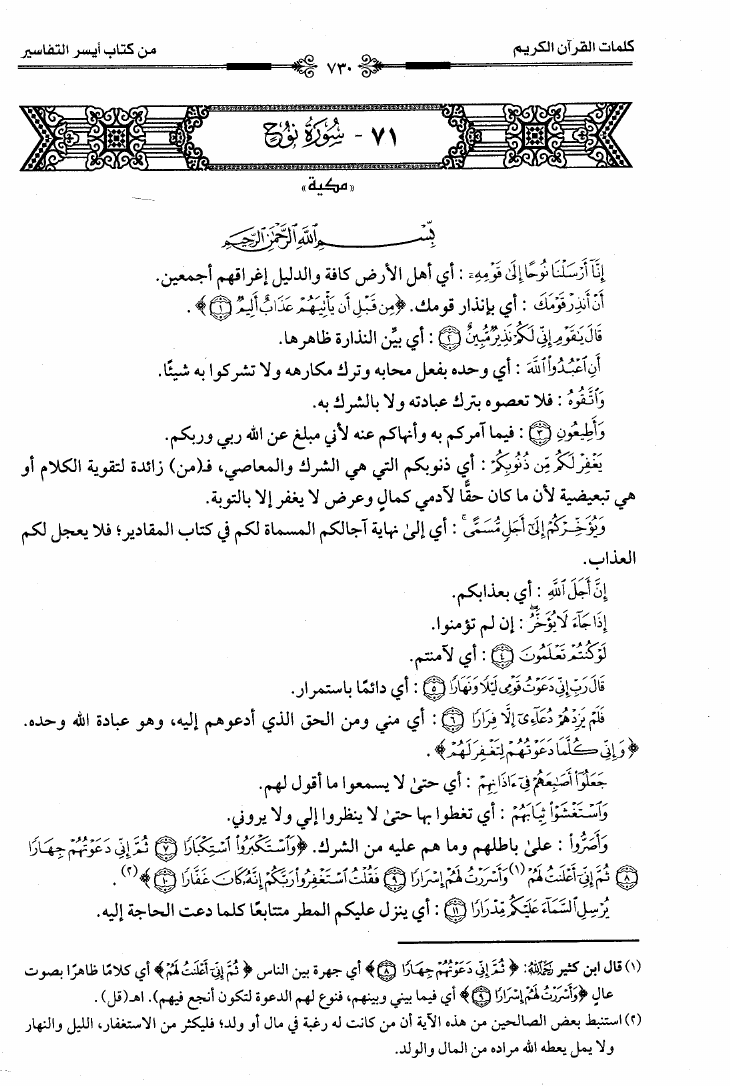 كلمات القرآن الكريم
٧٣٠
من كتاب أيسر التفاسير
٧١ - سُورَةُ نُوحٍ
«مكية»
بِسْمِ اللَّهِ الرَّحْمَٰنِ الرَّحِيمِ
إِنَّا أَرْسَلْنَا نُوحًا إِلَىٰ قَوْمِهِ : أي أهل الأرض كافة والدليل إغراقهم أجمعين.
أَنْ أَنذِرْ قَوْمَكَ : أي بإنذار قومك. ﴿مِن قَبْلِ أَن يَأْتِيَهُمْ عَذَابٌ أَلِيمٌ ١﴾ .
قَالَ يَٰقَوْمِ إِنِّي لَكُمْ نَذِيرٌ مُّبِينٌ ٢ : أي بيِّن النذارة ظاهرها.
أَنِ اعْبُدُوا اللَّهَ : أي وحده بفعل محابه وترك مكارهه ولا تشركوا به شيئًا.
وَاتَّقُوهُ : فلا تعصوه بترك عبادته ولا بالشرك به.
وَأَطِيعُونِ ٣ : فيما آمركم به وأنهاكم عنه لأني مبلغ عن الله ربي وربكم.
يَغْفِرْ لَكُم مِّن ذُنُوبِكُمْ : أي ذنوبكم التي هي الشرك والمعاصي، فـ(من) زائدة لتقوية الكلام أو
هي تبعيضية لأن ما كان حقًّا لآدمي كمالٍ وعرض لا يغفر إلا بالتوبة.
وَيُؤَخِّرْكُمْ إِلَىٰ أَجَلٍ مُّسَمًّى : أي إلىٰ نهاية آجالكم المسماة لكم في كتاب المقادير؛ فلا يعجل لكم
العذاب.
إِنَّ أَجَلَ اللَّهِ : أي بعذابكم.
إِذَا جَاءَ لَا يُؤَخَّرُ : إن لم تؤمنوا.
لَوْ كُنتُمْ تَعْلَمُونَ ٤ : أي لآمنتم.
قَالَ رَبِّ إِنِّي دَعَوْتُ قَوْمِي لَيْلًا وَنَهَارًا ٥ : أي دائمًا باستمرار.
فَلَمْ يَزِدْهُمْ دُعَائِي إِلَّا فِرَارًا ٦ : أي مني ومن الحق الذي أدعوهم إليه، وهو عبادة الله وحده.
﴿وَإِنِّي كُلَّمَا دَعَوْتُهُمْ لِتَغْفِرَ لَهُمْ﴾ .
جَعَلُوا أَصَٰبِعَهُمْ فِي ءَاذَانِهِمْ : أي حتىٰ لا يسمعوا ما أقول لهم.
وَاسْتَغْشَوْا ثِيَابَهُمْ : أي تغطوا بها حتىٰ لا ينظروا إلي ولا يروني.
وَأَصَرُّوا : علىٰ باطلهم وما هم عليه من الشرك. ﴿وَاسْتَكْبَرُوا اسْتِكْبَارًا ٧ ثُمَّ إِنِّي دَعَوْتُهُمْ جِهَارًا
٨ ثُمَّ إِنِّي أَعْلَنتُ لَهُمْ (١) وَأَسْرَرْتُ لَهُمْ إِسْرَارًا ٩ فَقُلْتُ اسْتَغْفِرُوا رَبَّكُمْ إِنَّهُ كَانَ غَفَّارًا ١٠﴾ (٢) .
يُرْسِلِ السَّمَاءَ عَلَيْكُم مِّدْرَارًا ١١ : أي ينزل عليكم المطر متتابعًا كلما دعت الحاجة إليه.
(١) قال ابن كثير رَحِمَهُ اللهُ: ﴿ ثُمَّ إِنِّي دَعَوْتُهُمْ جِهَارًا ٨﴾ أي جهرة بين الناس ﴿ ثُمَّ إِنِّي أَعْلَنتُ لَهُمْ﴾ أي كلامًا ظاهرًا بصوت
عالٍ ﴿وَأَسْرَرْتُ لَهُمْ إِسْرَارًا ٩﴾ أي فيما بيني وبينهم، فنوع لهم الدعوة لتكون أنجع فيهم). اهـ(قل) .
(٢) استنبط بعض الصالحين من هذه الآية أن من كانت له رغبة في مال أو ولد؛ فليكثر من الاستغفار، الليل والنهار
ولا يمل يعطه الله مراده من المال والولد.